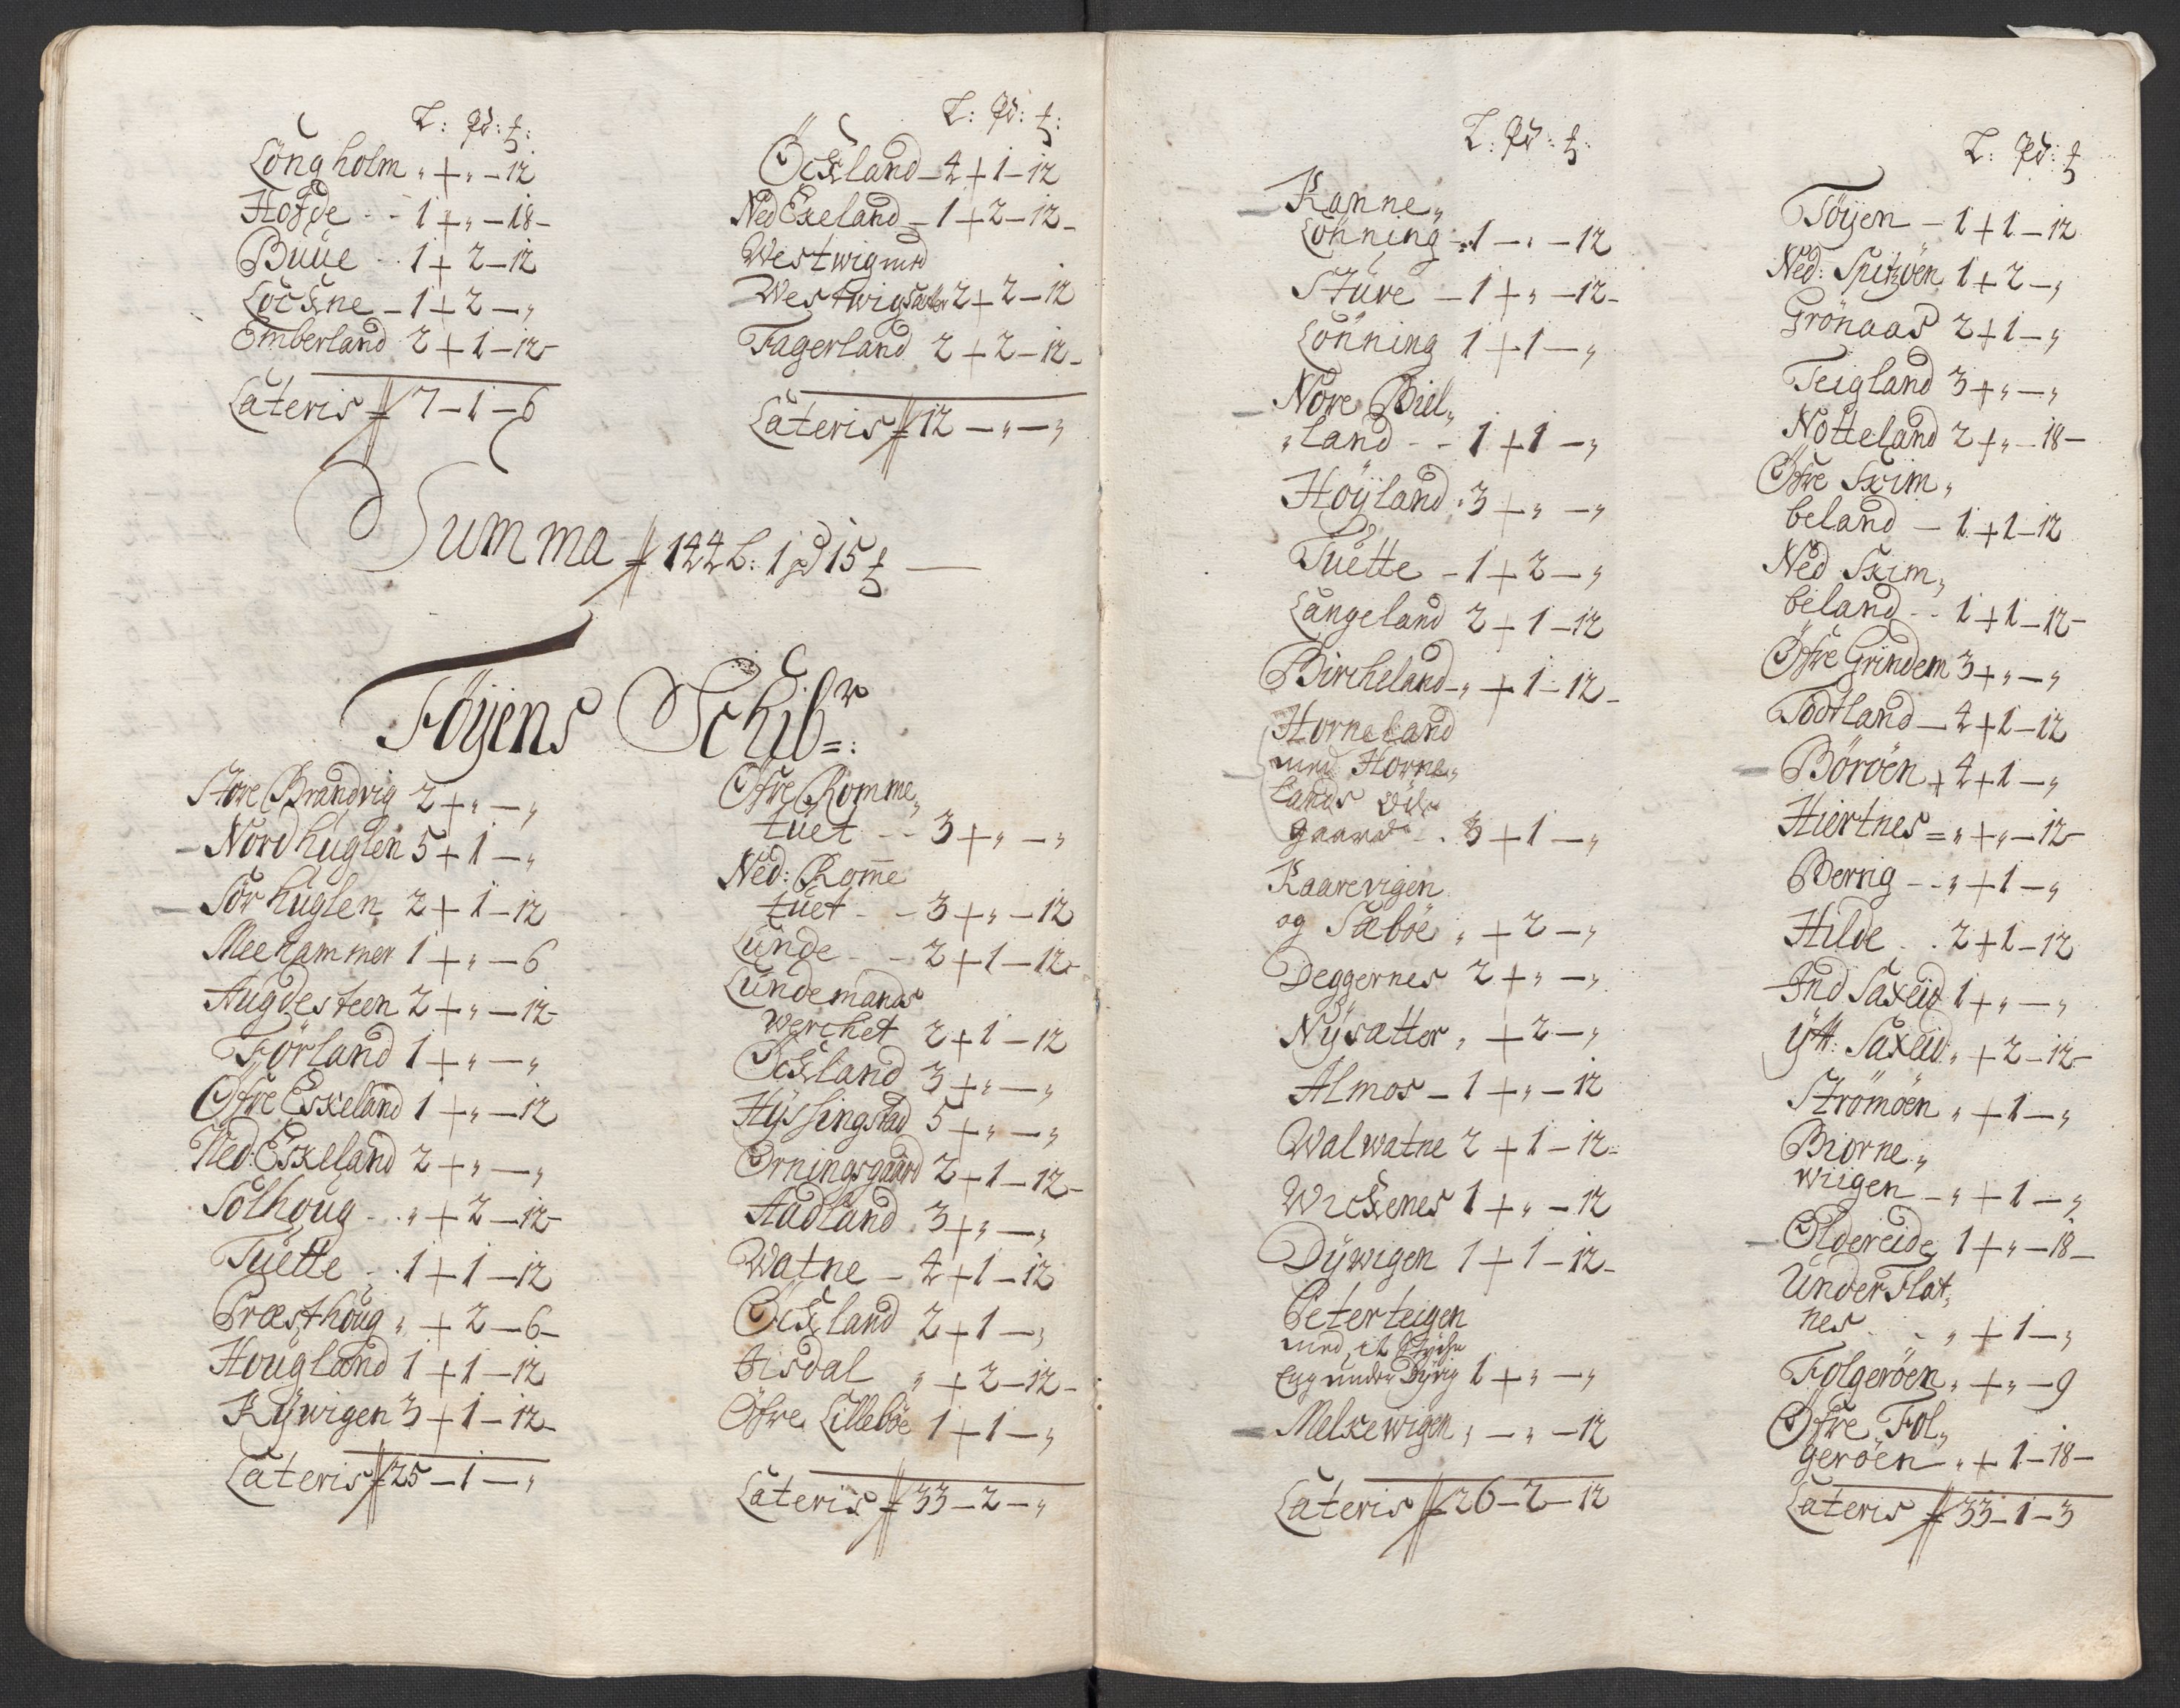 L: Pd: ℔:
Longholm „ + „ – 12
Hofde – – 1 + „ – 18 –
Buue – . 1 + 2 – 12
Lockne – 1 + 2 – „
Emberland 2 + 1 – 12 –
Lateris 7 – 1 – 6
L: Pd: ℔:
Öckland – 4 + 1 – 12
Ned Exeland – 1 + 2 – 12 –
Westwig med
Westwig 2 + 2 – 12
Fagerland 2 + 2 – 12 –
Lateris 12 – „ – „
Summa 144 L: 1 pd 15 ℔ —
Föyens Schibr =:
Store Brandvig 2 + „ – „
– Nordhuglen 5 + 1 – „
– Sörhuglen 2 + 1 – 12
Meehammer 1 + „ – 6
Augdesteen 2 + „ – 12 –
Förland 1 + „ – „
Ofre Eskeland 1 + „ – 12
Ned: Eskeland 2 + „ – „
Solhoug – . „ + 2 – 12 –
Tuette – . 1 + 1 – 12
Præsthoug „ + 2 – 6 –
Hougland 1 + 1 – 12
Kÿwigen 3 + 1 – 12 –
Lateris 25 – 1 – „
Öfre Romme„
tuet – – 3 + „ – „
Ned: Rom̅e
tuet – – 3 + „ – 12
Lunde – – 2 + 1 – 12 –
Lundemands
werchet 2 + 1 – 12
Öckland 3 + „ – „
Hÿssingstad 5 + „ – „
Örningsgaard 2 + 1 – 12 –
Aadland 3 + „ – „
Watne – 4 + 1 – 12
Öckland 2 + 1 – „
Jisdal „ + 2 – 12 –
Öfre Lilleböe 1 + 1 – „
Lateris 33 – 2 – „
L: Pd: ℔:
– Kanne„
Lönning – 1 – „ – 12
Sture – 1 + „ – 12 –
Lönning 1 + 1 – „
– Nore Biel„
„land – – 1 + 1 – „
Höÿland . 3 + „ – „
Tuette – 1 + 2 – „
Langeland 2 + 1 – 12
Bircheland – „ + 1 – 12 –
Horneland
– med Horne„
lands öde
gaard – . 3 + 1 – „
Kaarevigen
og Sæböe „ + 2 – „
Deggernes 2 + „ – „
Nÿsætter „ + 2 – „
Almos – 1 + „ – 12
Walwatne 2 + 1 – 12 –
Wickenes 1 + „ – 12
Dÿwigen 1 + 1 – 12 –
Peterteigen
med it støche
Eng under Dyvig 1 + „ – „
– Melkewigen „ – „ – 12
Lateris 26 – 2 – 12
L: Pd: ℔
Töÿen – 1 + 1 – 12
Ned: Spitzöen 1 + 2 – „
Grönaas 2 + 1 – „
Teigland 3 + „ – „
Notteland 2 + „ – 18 –
Öfre Skim„
beland – 1 + 1 – 12
Ned Skim„
beland – . 1 + 1 – 12 –
Öfre Grindem 3 + „ – „
Todtland – 4 + 1 – 12
– Böröen + 4 + 1 – „
Hiertnes = „ + „ – 12 –
Berrig – . „ + 1 – „
Hilde . . 2 + 1 – 12
Ind Saxeid 1 + „ – „
Ÿtt: Saxeid „ + 2 – 12 –
Strömöen „ + 1 – „
Biorne„
wiigen – „ + 1 – „
– Oldereide 1 + „ – 18 –
Under Flat„
nes . – „ + 1 – „
Folgeröen „ + „ – 9
Öfre Fol„
geröen – „ + 1 – 18 –
Lateris 33 – 1 – 3